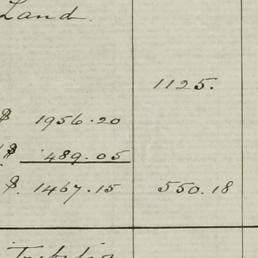 Land.
1125.
$ 1956.20
$ 489.05
$ 1467.15 550.18